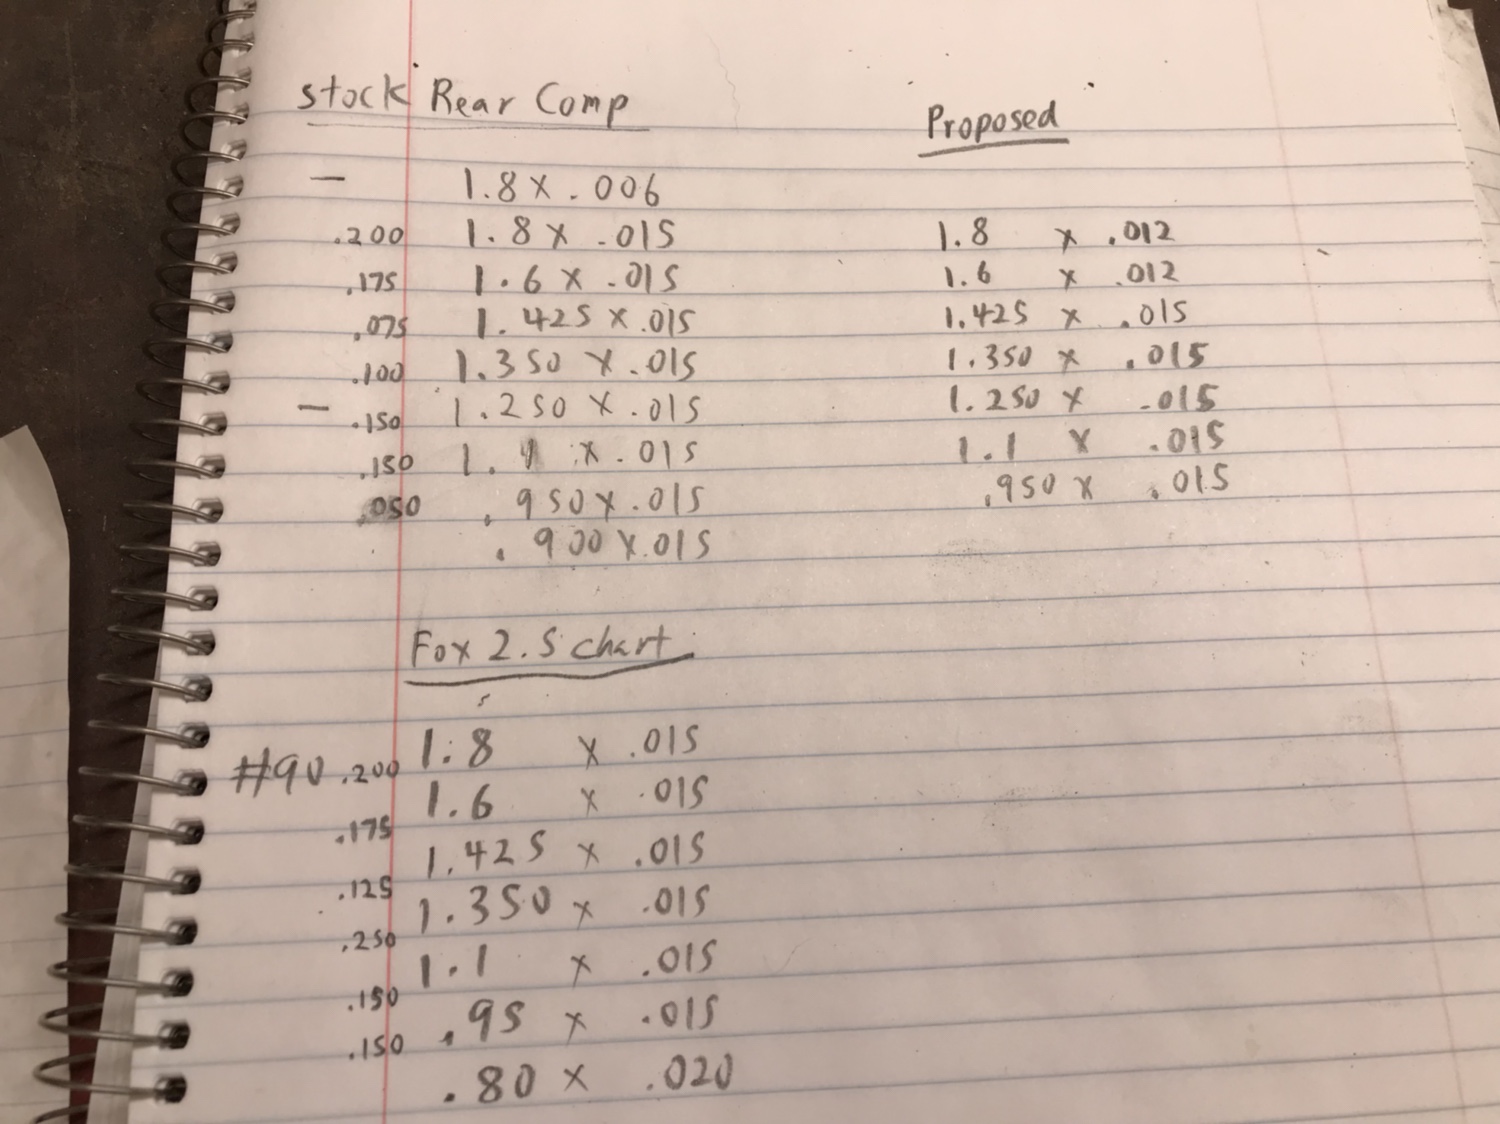 stock Rear Comp
Proposed
— 1.8 x .006
.200 1.8 x .015 1.8 x .012
.175 1.6 x .015 1.6 x .012
.075 1.425 x .015 1.425 x .015
.100 1.350 x .015 1.350 x .015
— .150 1.250 x .015 1.250 x .015
.150 1.1 x .015 1.1 x .015
.050 .950 x .015 .950 x .015
.900 x .015
Fox 2.5 chart
#90 .200 1.8 x .015
.175 1.6 x .015
.125 1.425 x .015
.250 1.350 x .015
.150 1.1 x .015
.150 .95 x .015
.80 x .020